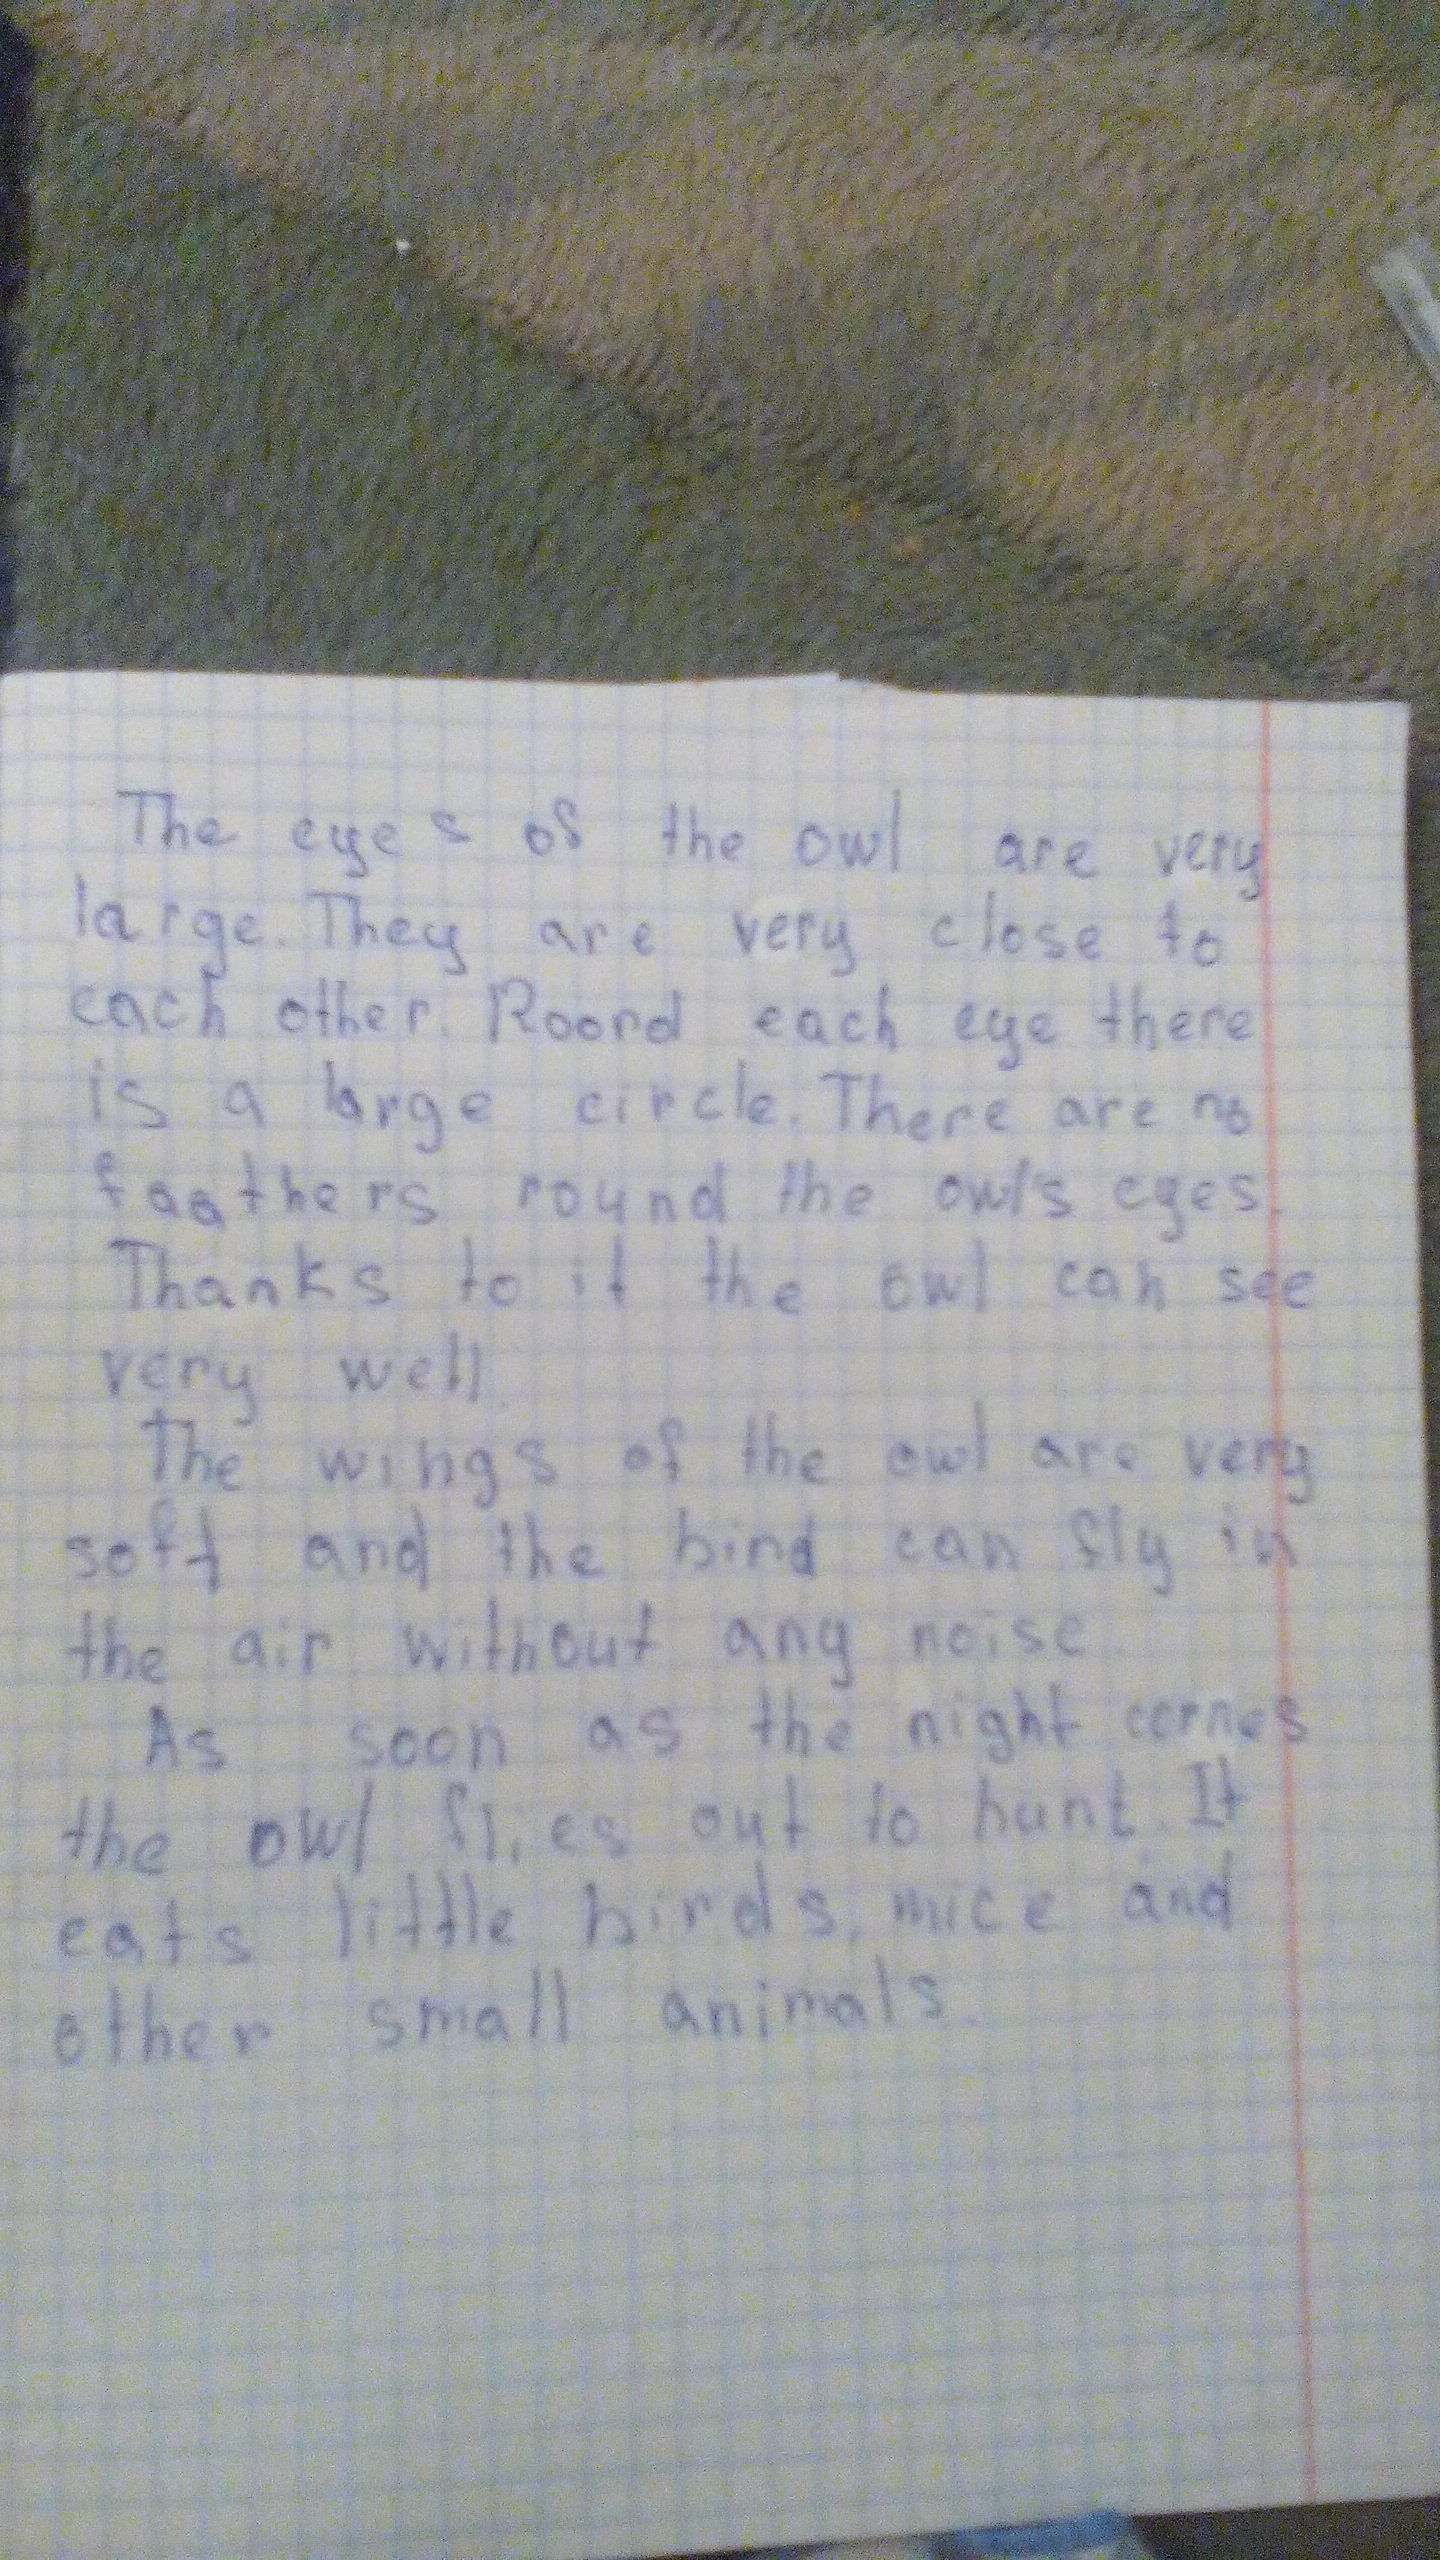 The eyes of the owl are very
large. They are very close to
each other. Roord each eye there
is a large circle. There are no
faathers round the owl's eyes.
Thanks to it the owl can see
very well.
The wings of the owl are very
soft and the bind can fly in
the air without any noise
As soon as the night comes
the owl flies out to hunt. It
eats little birds, mice and
other small animals.